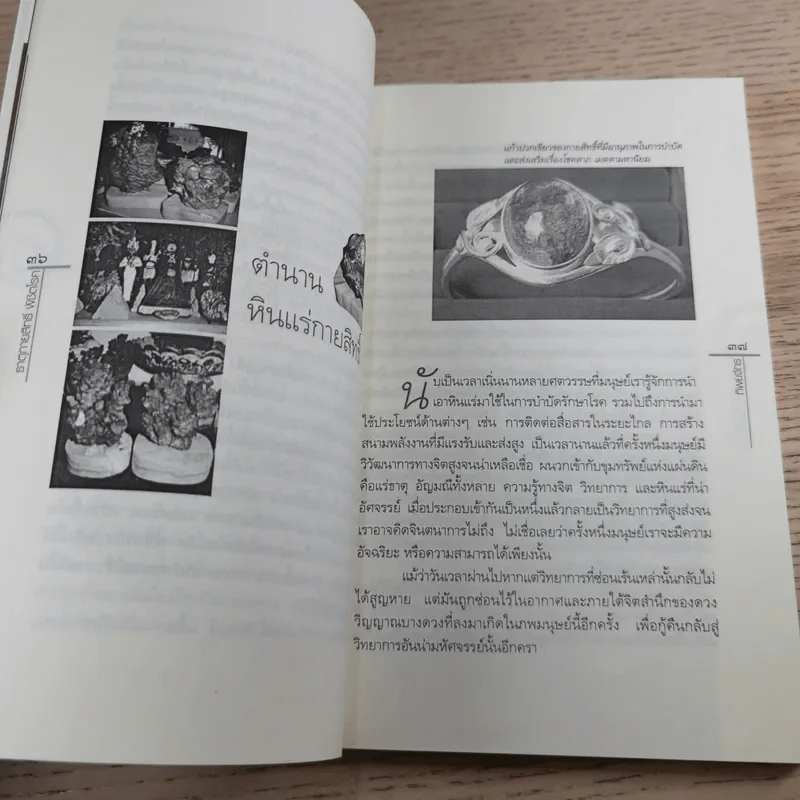 ๓๖
ธาตุกายสิทธิ์ พิชิตโรค
ตำนาน
หินแร่กายสิทธิ์
แก้วปวกเขียวของกายสิทธิ์ที่มีอานุภาพในการบำบัด
และส่งเสริมเรื่องโชคลาภ เมตตามหานิยม
๓๗
ทิพยจักร
นับเป็นเวลาเนิ่นนานหลายศตวรรษที่มนุษย์เรารู้จักการนำ
เอาหินแร่มาใช้ในการบำบัดรักษาโรค รวมไปถึงการนำมา
ใช้ประโยชน์ด้านต่างๆ เช่น การติดต่อสื่อสารในระยะไกล การสร้าง
สนามพลังงานที่มีแรงรับและส่งสูง เป็นเวลานานแล้วที่ครั้งหนึ่งมนุษย์มี
วิวัฒนาการทางจิตสูงจนน่าเหลือเชื่อ ผนวกเข้ากับขุมทรัพย์แห่งแผ่นดิน
คือแร่ธาตุ อัญมณีทั้งหลาย ความรู้ทางจิต วิทยาการ และหินแร่ที่น่า
อัศจรรย์ เมื่อประกอบเข้ากันเป็นหนึ่งแล้วกลายเป็นวิทยาการที่สูงส่งจน
เราอาจคิดจินตนาการไม่ถึง ไม่เชื่อเลยว่าครั้งหนึ่งมนุษย์เราจะมีความ
อัจฉริยะ หรือความสามารถได้เพียงนั้น
แม้ว่าวันเวลาผ่านไปหากแต่วิทยาการที่ซ่อนเร้นเหล่านั้นกลับไม่
ได้สูญหาย แต่มันถูกซ่อนไว้ในอากาศและภายใต้จิตสำนึกของดวง
วิญญาณบางดวงที่ลงมาเกิดในภพมนุษย์นี้อีกครั้ง เพื่อกู้คืนกลับสู่
วิทยาการอันน่ามหัศจรรย์นั้นอีกครา